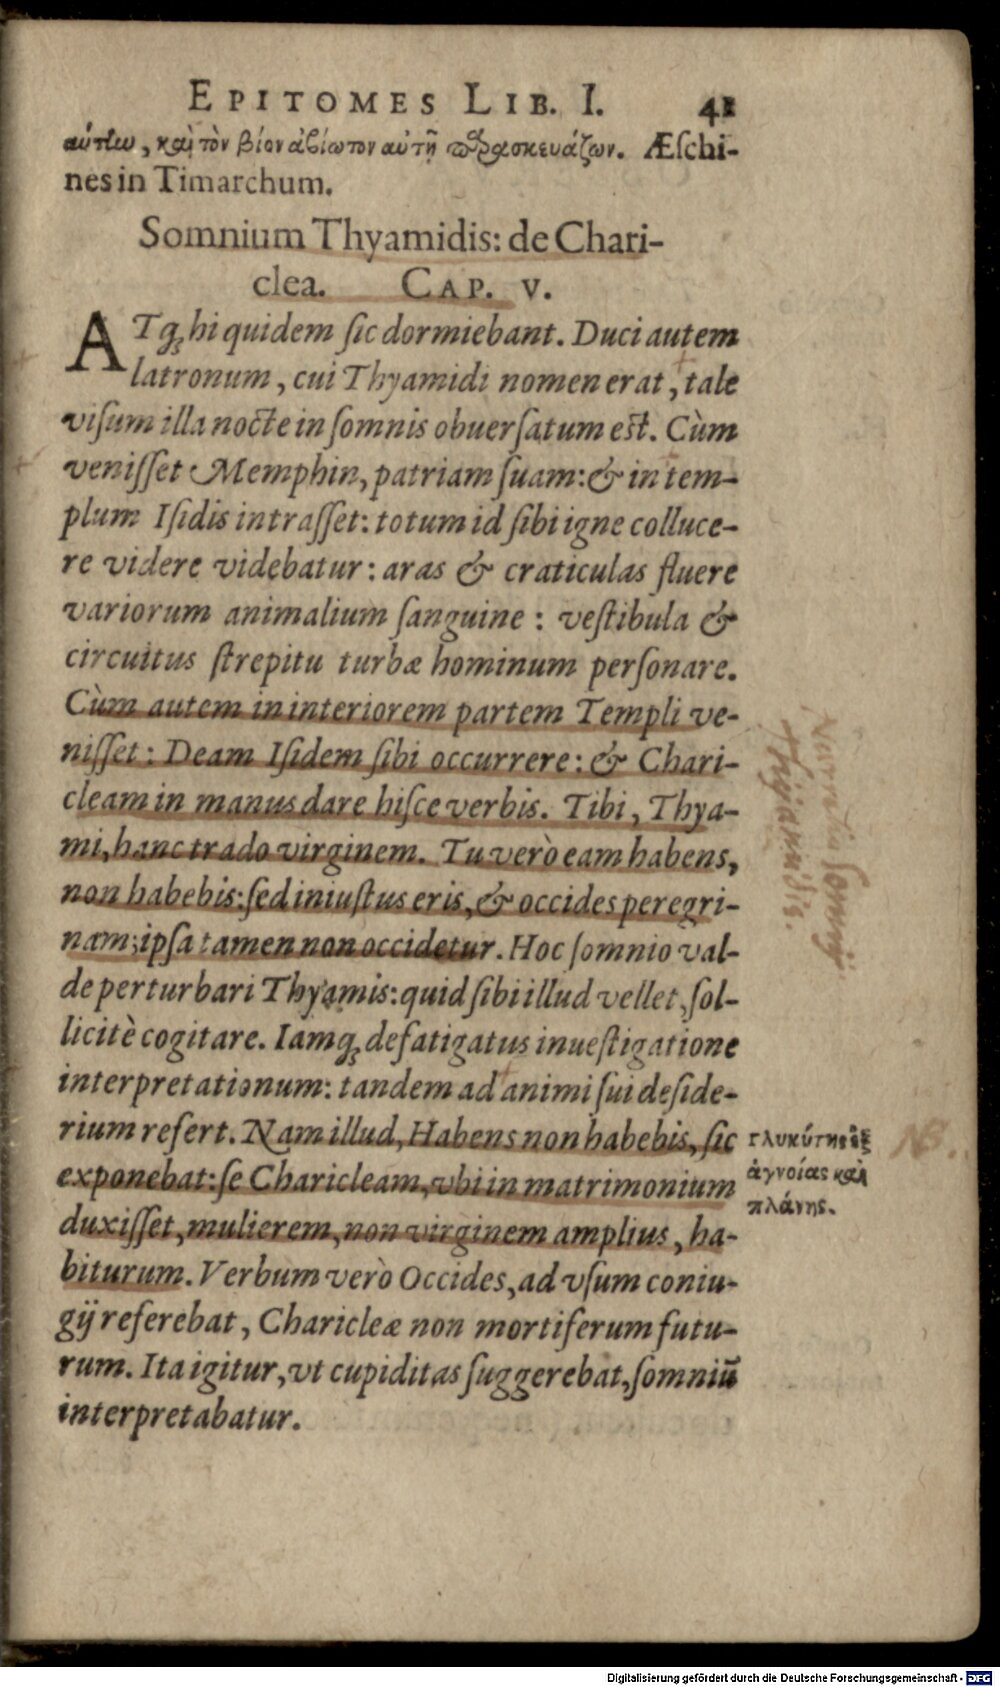 EPITOMES LIB. I. 41
αὐτὼ, καὶ τὸν βίον ἀβίωτον αὐτῇ παρασκευάζων. Æſchi-
nes in Timarchum.
Somnium Thyamidis: de Chari-
clea. CAP. V.
ATq; hi quidem ſic dormiebant. Duci autem
latronum, cui Thyamidi nomen erat, tale
viſum illa nocte in ſomnis obuerſatum est. Cùm
veniſſet Memphin, patriam ſuam: & in tem-
plum Iſidis intraſſet: totum id ſibi igne colluce-
re videre videbatur: aras & craticulas fluere
variorum animalium ſanguine: veſtibula &
circuitus ſtrepitu turbæ hominum perſonare.
Cùm autem in interiorem partem Templi ve-
niſſet: Deam Iſidem ſibi occurrere: & Chari-
cleam in manus dare hiſce verbis. Tibi, Thya-
mi, hanc trado virginem. Tu verò eam habens,
non habebis: ſed iniuſtus eris, & occides peregri-
nam; ipſa tamen non occidetur. Hoc ſomnio val-
de perturbari Thyamis: quid ſibi illud vellet, ſol-
licitè cogitare. Iamq; defatigatus inueſtigatione
interpretationum: tandem ad animi ſui deſide-
rium refert. Nam illud, Habens non habebis, ſic
exponebat: ſe Charicleam, vbi in matrimonium
duxiſſet, mulierem, non virginem amplius, ha-
biturum. Verbum verò Occides, ad vſum coniu-
gij referebat, Charicleæ non mortiferum futu-
rum. Ita igitur, vt cupiditas ſuggerebat, ſomniū
interpretabatur.
Narratio ſomnij
Thyamidis.
γλυκύτης ἐξ
ἀγνοίας καὶ
πλάνης.
NB.
Digitalisierung gefördert durch die Deutsche Forschungsgemeinschaft - DFG